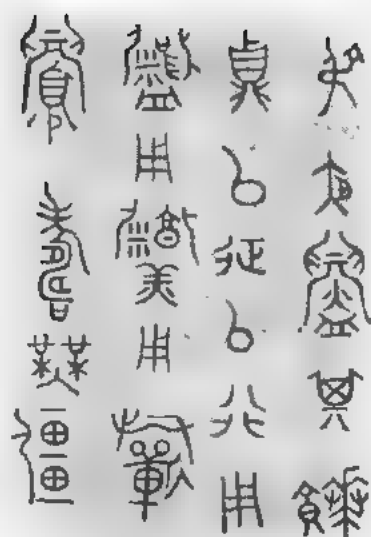 叔夜鑄其饙
鼎以征以行用
用羹用祈
眉壽無疆